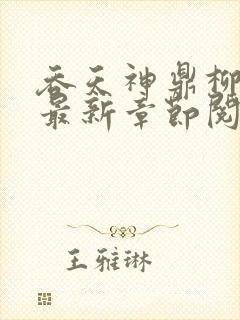 吞天神鼎柳
最新章节阅
王雅琳